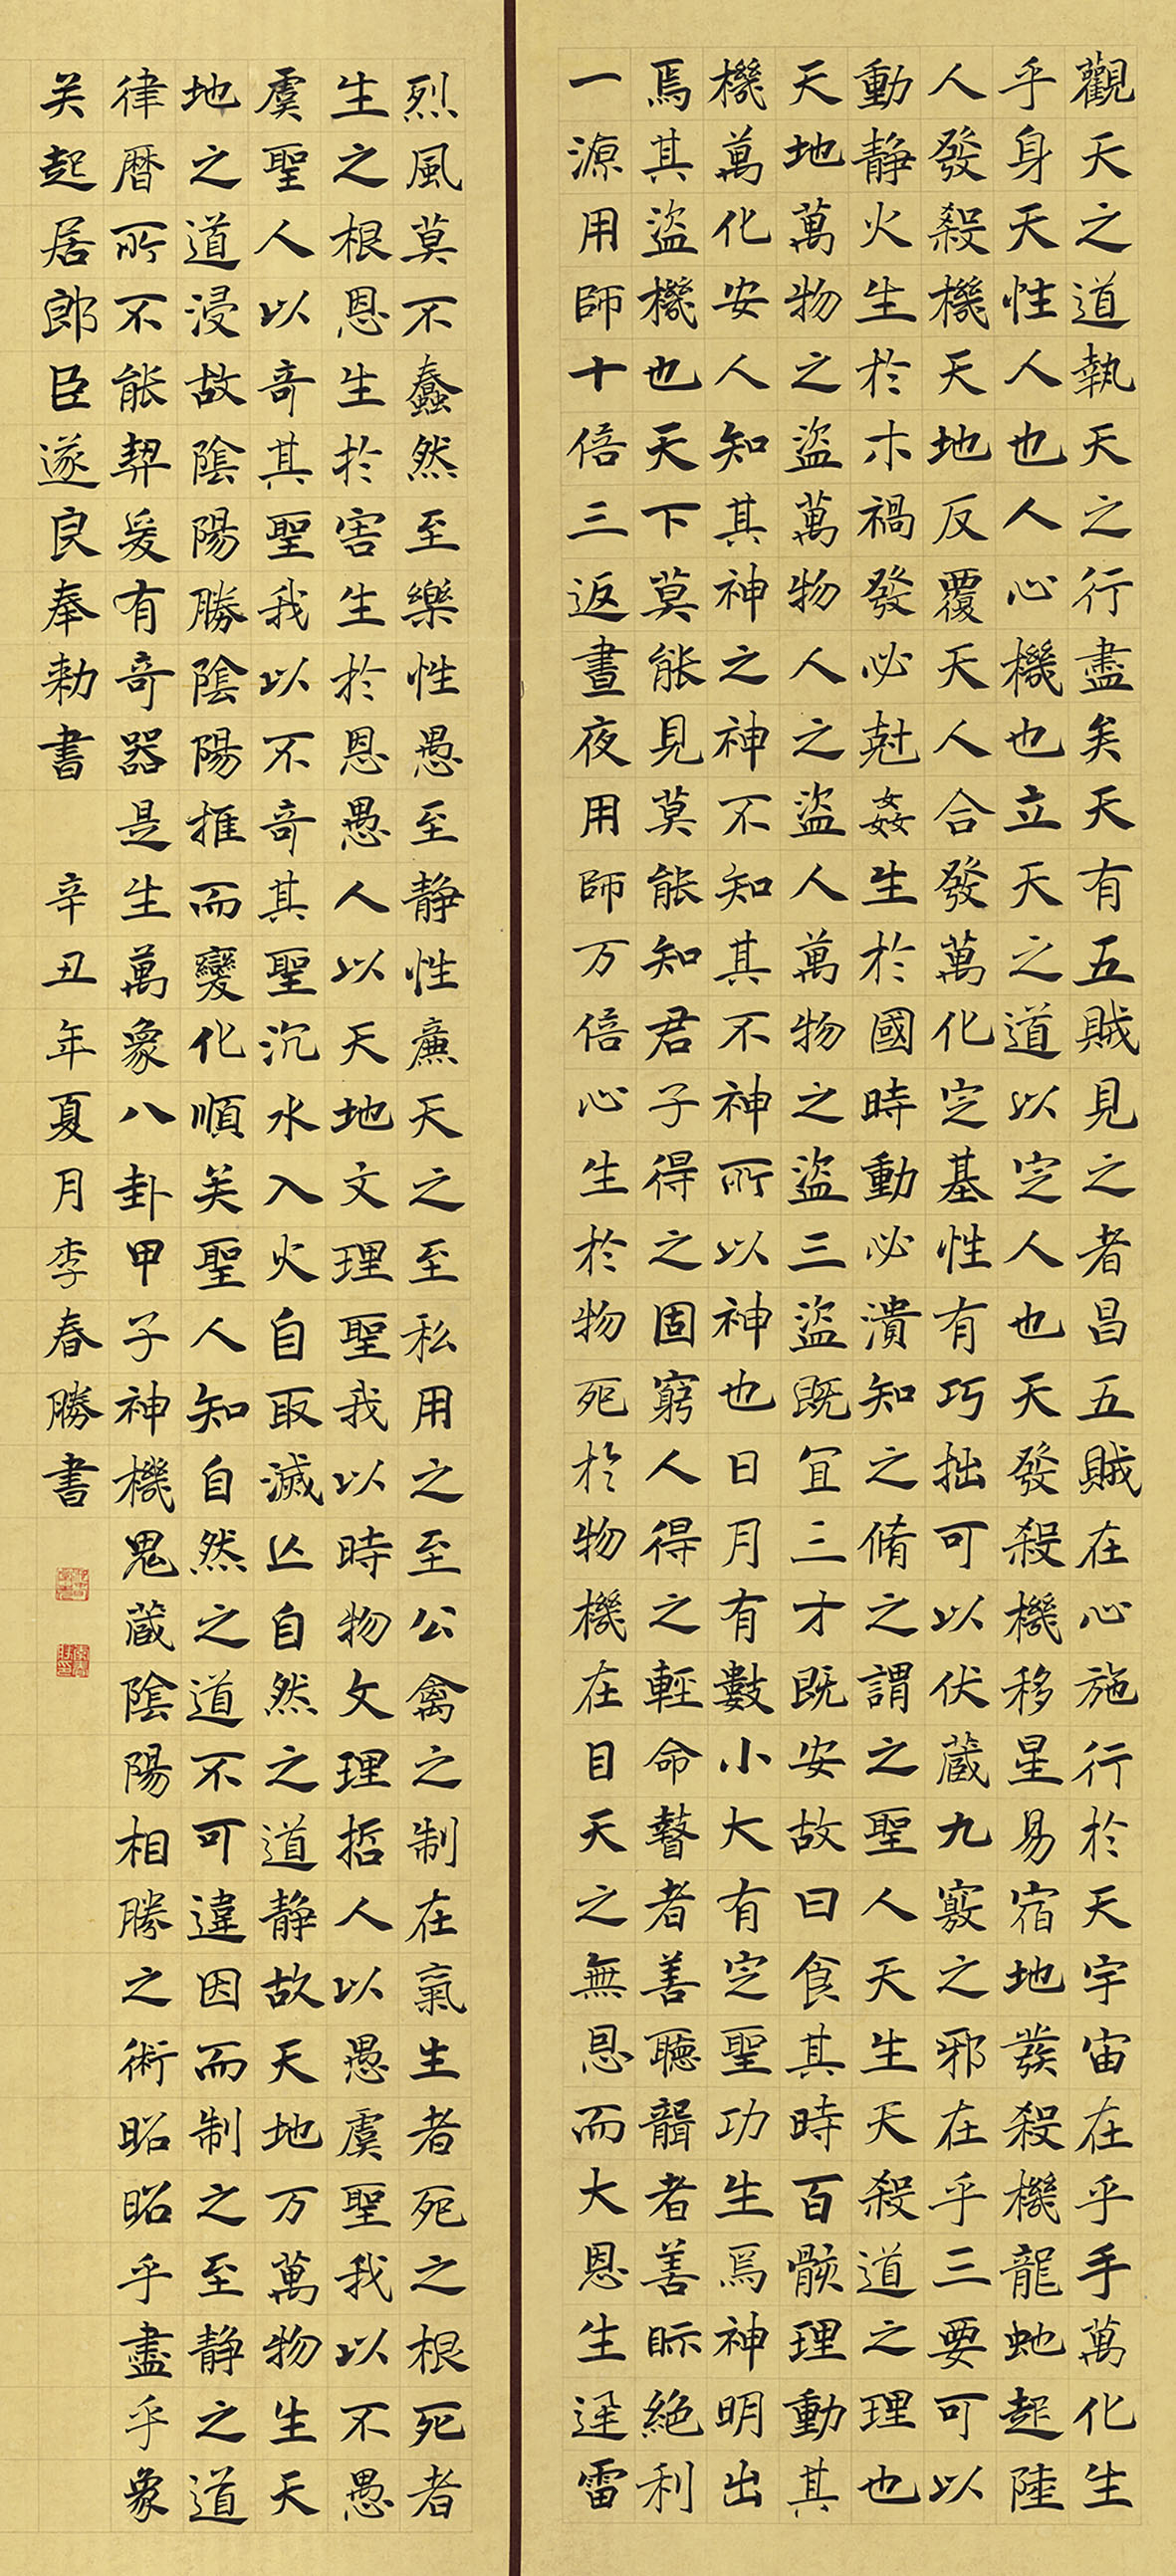 觀天之道執天之行盡矣天有五賊見之者昌五賊在心施行於天宇宙在乎手萬化生
乎身天性人也人心機也立天之道以定人也天發殺機移星易宿地發殺機龍虵起陸
人發殺機天地反覆天人合發萬化定基性有巧拙可以伏藏九竅之邪在乎三要可以
動静火生於木禍發必尅姦生於國時動必潰知之脩之謂之聖人天生天殺道之理也
天地萬物之盜萬物人之盜人萬物之盜三盜既宜三才既安故曰食其時百骸理動其
機萬化安人知其神之神不知其不神所以神也日月有數小大有定聖功生焉神明出
焉其盜機也天下莫能見莫能知君子得之固窮人得之輕命瞽者善聽聾者善眎絕利
一源用師十倍三返晝夜用師万倍心生於物死於物機在目天之無恩而大恩生迅雷
烈風莫不蠢然至樂性愚至静性廉天之至私用之至公禽之制在氣生者死之根死者
生之根恩生於害生於恩愚人以天地文理聖我以時物文理哲人以愚虞聖我以不愚
虞聖人以奇其聖我以不奇其聖沉水入火自取滅亡自然之道静故天地万萬物生天
地之道浸故陰陽勝陰陽推而變化順矣聖人知自然之道不可違因而制之至静之道
律暦所不能契爰有奇器是生萬象八卦甲子神機鬼藏陰陽相勝之術昭昭乎盡乎象
矣起居郎臣遂良奉勑書 辛丑年夏月李春勝書